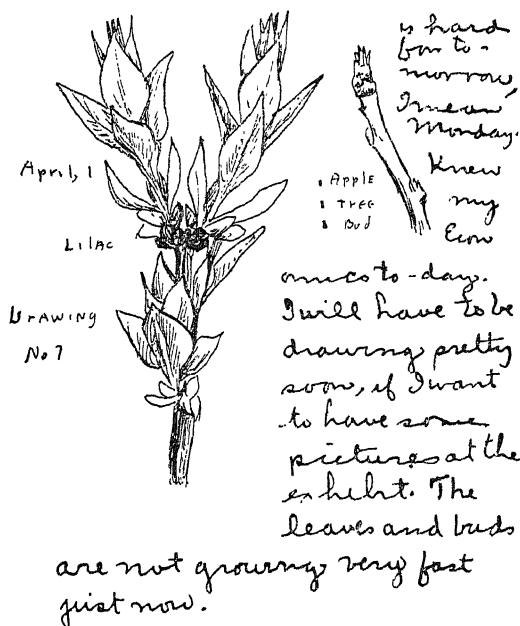 April, 1
Lilac
Drawing
No 7
Apple
Tree
Bud
is hard
for to-
morrow,
I mean
Monday.
Knew
my
Econ
omics to-day.
I will have to be
drawing pretty
soon, if I want
to have some
pictures at the
exhibit. The
leaves and buds
are not growing very fast
just now.